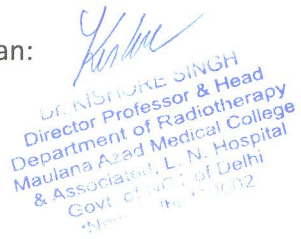 an:
Dr. KISHORE SINGH
Director Professor & Head
Department of Radiotherapy
Maulana Azad Medical College
& Associated, L. N. Hospital
Govt. of of Delhi